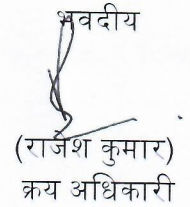 भवदीय
(राजेश कुमार)
क्रय अधिकारी